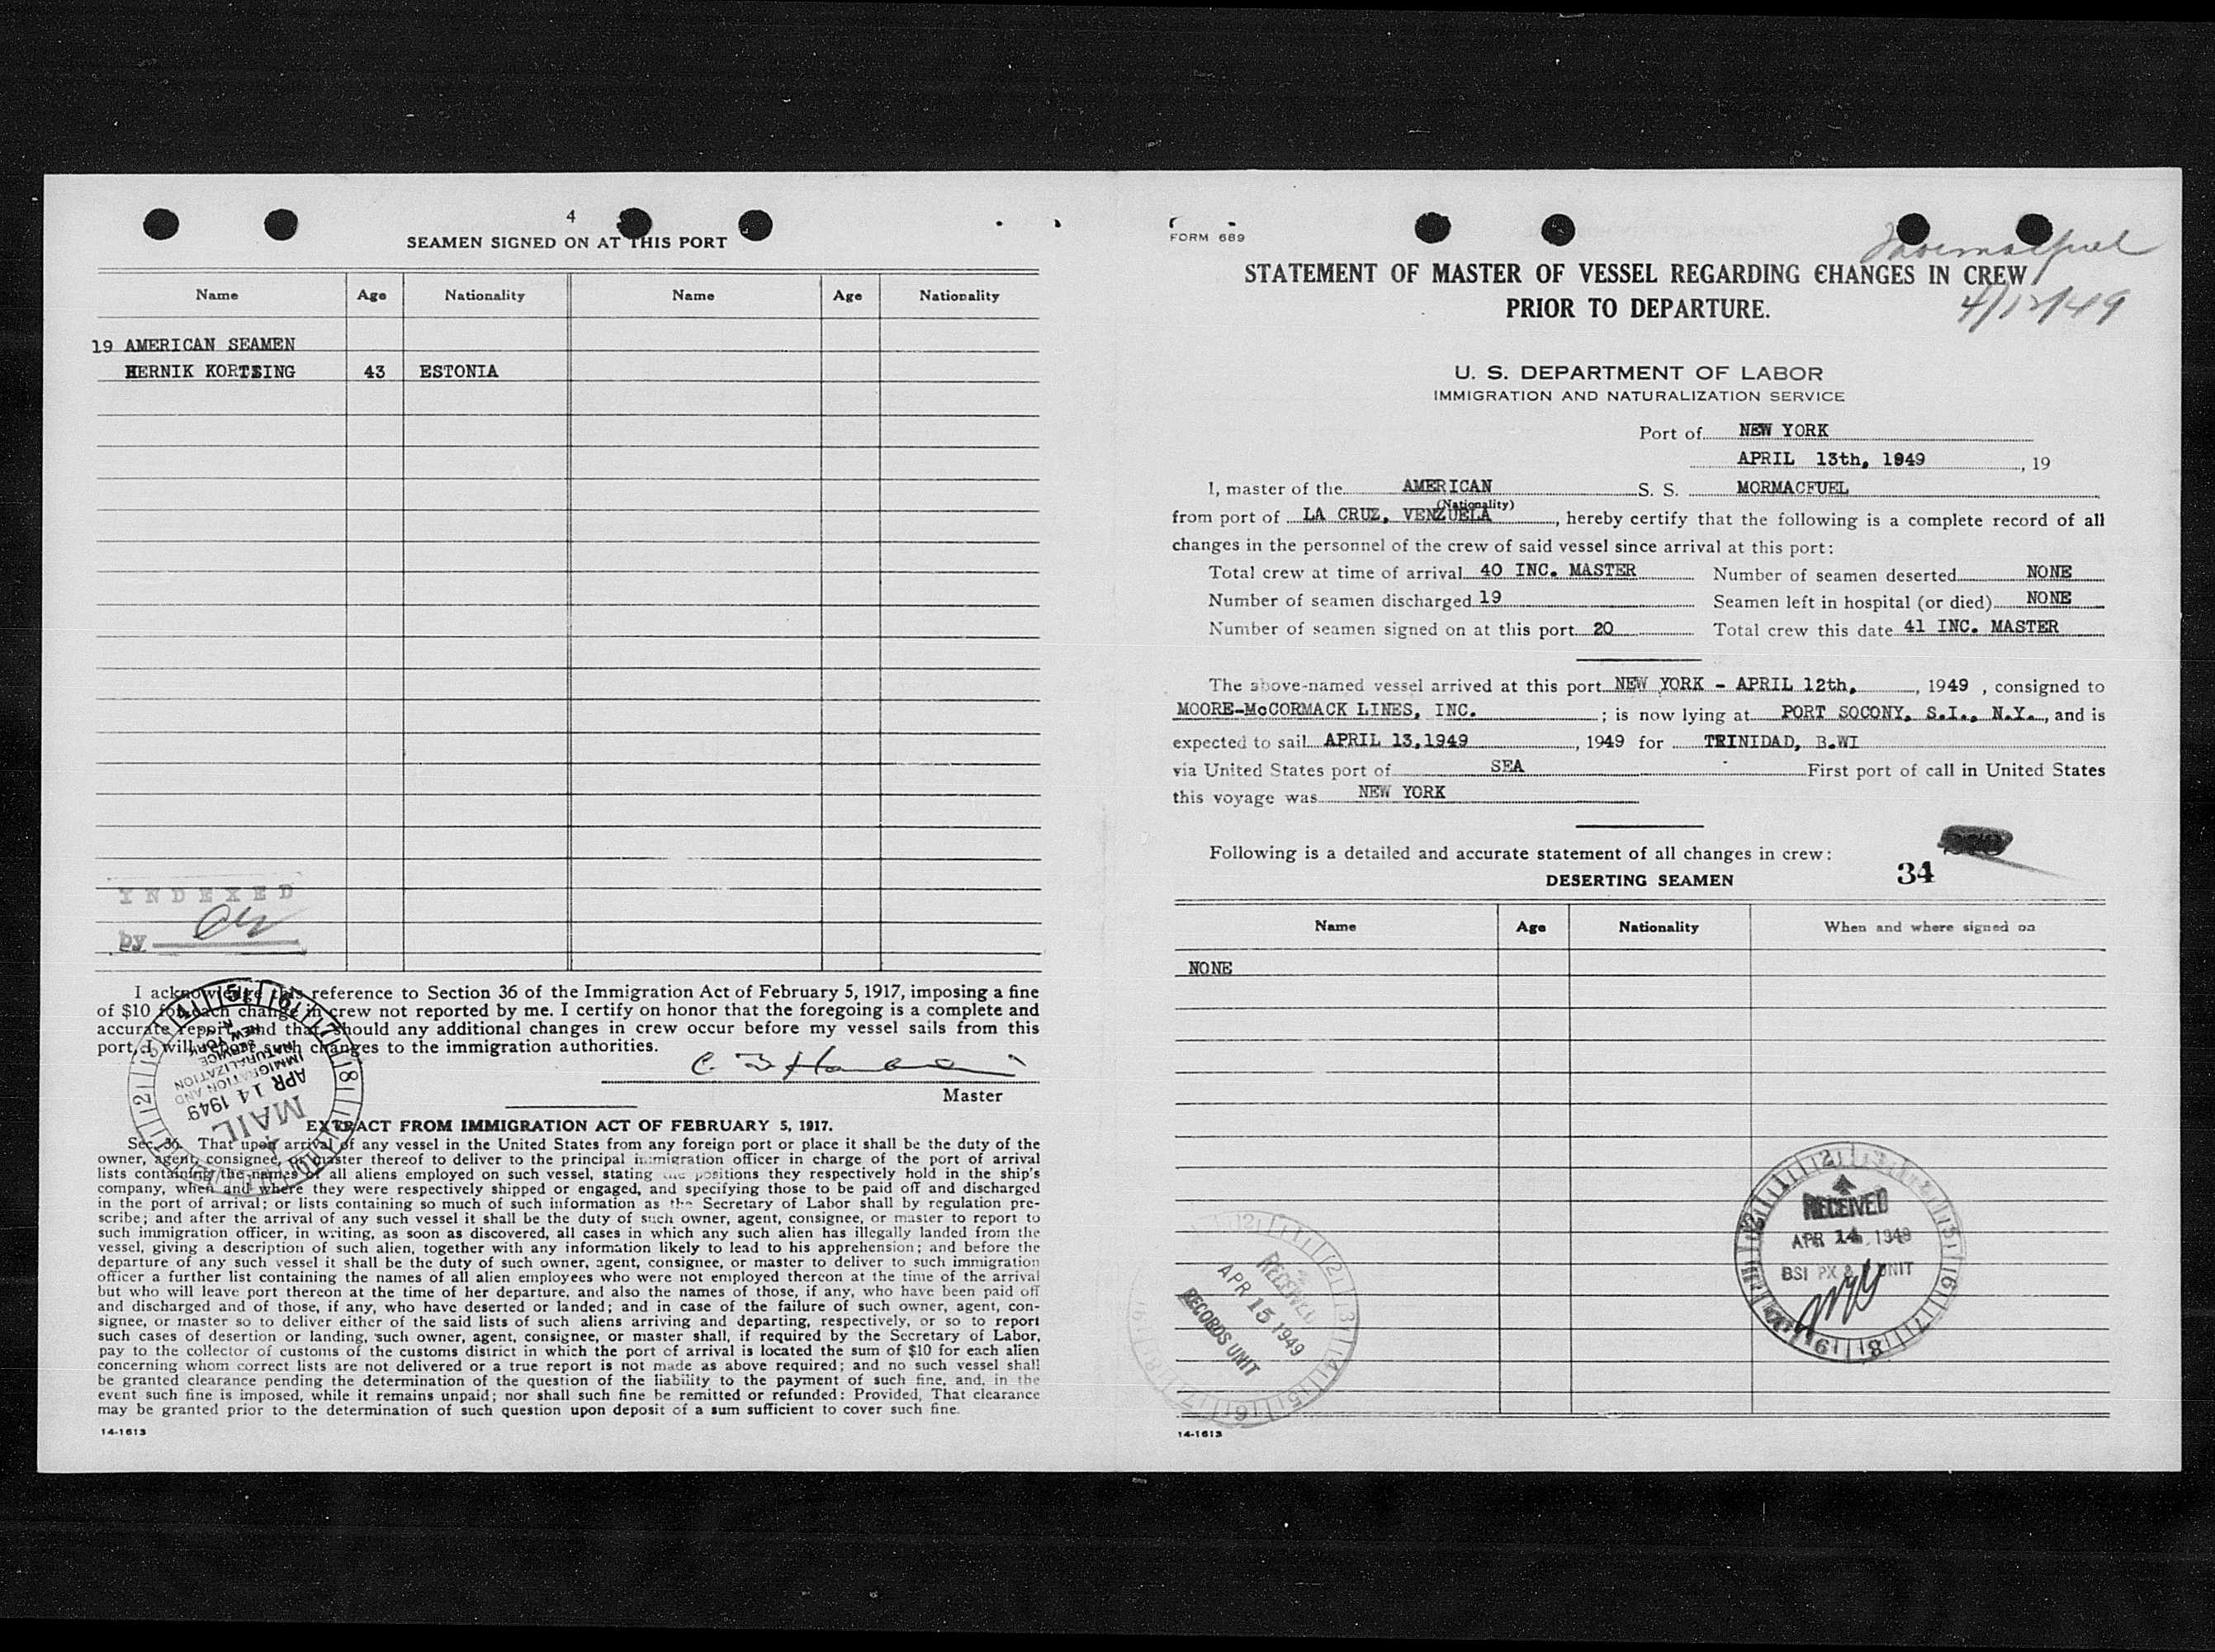 4
SEAMEN SIGNED ON AT THIS PORT
Name Age Nationality Name Age Nationality
19 AMERICAN SEAMEN
HERNIK KORTSING 43 ESTONIA
INDEXED
by
I acknowledge this reference to Section 36 of the Immigration Act of February 5, 1917, imposing a fine
of $10 for each change in crew not reported by me. I certify on honor that the foregoing is a complete and
accurate report, and that should any additional changes in crew occur before my vessel sails from this
port, I will report such changes to the immigration authorities.
Master
IMMIGRATION AND
NATURALIZATION
SERVICE
NEW YORK
APR 14 1949
MAIL
EXTRACT FROM IMMIGRATION ACT OF FEBRUARY 5, 1917.
Sec. 36. That upon arrival of any vessel in the United States from any foreign port or place it shall be the duty of the
owner, agent, consignee, or master thereof to deliver to the principal immigration officer in charge of the port of arrival
lists containing the names of all aliens employed on such vessel, stating the positions they respectively hold in the ship's
company, when and where they were respectively shipped or engaged, and specifying those to be paid off and discharged
in the port of arrival; or lists containing so much of such information as the Secretary of Labor shall by regulation pre-
scribe; and after the arrival of any such vessel it shall be the duty of such owner, agent, consignee, or master to report to
such immigration officer, in writing, as soon as discovered, all cases in which any such alien has illegally landed from the
vessel, giving a description of such alien, together with any information likely to lead to his apprehension; and before the
departure of any such vessel it shall be the duty of such owner, agent, consignee, or master to deliver to such immigration
officer a further list containing the names of all alien employees who were not employed thereon at the time of the arrival
but who will leave port thereon at the time of her departure, and also the names of those, if any, who have been paid off
and discharged and of those, if any, who have deserted or landed; and in case of the failure of such owner, agent, con-
signee, or master so to deliver either of the said lists of such aliens arriving and departing, respectively, or so to report
such cases of desertion or landing, such owner, agent, consignee, or master shall, if required by the Secretary of Labor,
pay to the collector of customs of the customs district in which the port of arrival is located the sum of $10 for each alien
concerning whom correct lists are not delivered or a true report is not made as above required; and no such vessel shall
be granted clearance pending the determination of the question of the liability to the payment of such fine, and, in the
event such fine is imposed, while it remains unpaid; nor shall such fine be remitted or refunded: Provided, That clearance
may be granted prior to the determination of such question upon deposit of a sum sufficient to cover such fine.
14-1613
FORM 689
Mormacfuel
4/12/49
STATEMENT OF MASTER OF VESSEL REGARDING CHANGES IN CREW
PRIOR TO DEPARTURE.
U. S. DEPARTMENT OF LABOR
IMMIGRATION AND NATURALIZATION SERVICE
Port of NEW YORK
APRIL 13th, 1949, 19
I, master of the AMERICAN S. S. MORMACFUEL
(Nationality)
from port of LA CRUZ, VENZUELA, hereby certify that the following is a complete record of all
changes in the personnel of the crew of said vessel since arrival at this port:
Total crew at time of arrival 40 INC. MASTER Number of seamen deserted NONE
Number of seamen discharged 19 Seamen left in hospital (or died) NONE
Number of seamen signed on at this port 20 Total crew this date 41 INC. MASTER
The above-named vessel arrived at this port NEW YORK - APRIL 12th, , 1949 , consigned to
MOORE-McCORMACK LINES, INC. ; is now lying at PORT SOCONY, S.I., N.Y., and is
expected to sail APRIL 13,1949 , 1949 for TRINIDAD, B.WI
via United States port of SEA First port of call in United States
this voyage was NEW YORK
Following is a detailed and accurate statement of all changes in crew:
34
DESERTING SEAMEN
Name Age Nationality When and where signed on
NONE
RECEIVED
APR 14 1949
BSI PX & UNIT
RECEIVED
APR 15 1949
RECORDS UNIT
14-1613